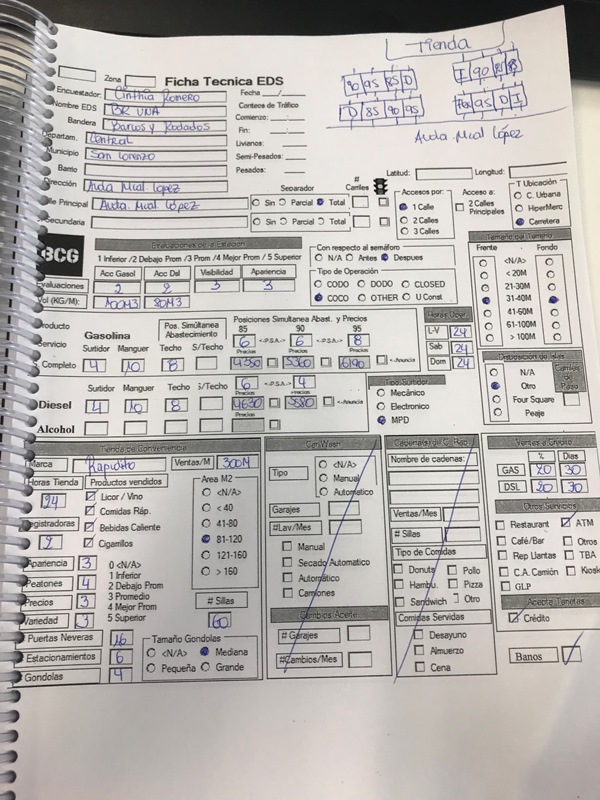 Tienda
90 95 85 D
I 90 85 85
D 85 90 95
95 D I
Avda. Mcal López
Zona
Ficha Tecnica EDS
Encuestador: Cinthia Romero
Nombre EDS BR UNA
Bandera Barcos y Rodados
Departam. Central
Municipio San Lorenzo
Barrio
Dirección Avda Mcal. López
Calle Principal Avda. Mcal. López
Secundaria
Fecha __/__/__
Conteos de Tráfico
Comienzo:
Fin:
Livianos:
Semi-Pesados:
Pesados:
Latitud:
Longitud:
Separador
# Carriles
Sin Parcial Total
Sin Parcial Total
Accesos por:
1 Calle
2 Calles
3 Calles
Acceso a:
2 Calles Principales
T Ubicación
C. Urbana
HiperMerc
Carretera
BCG
Evaluaciones de la Estacion
1 Inferior /2 Debajo Prom /3 Prom /4 Mejor Prom / 5 Superior
Acc Gasol Acc Dsl Visibilidad Apariencia
Evaluaciones 2 2 3 3
Vol (KG/M):
80M3
Con respecto al semáforo
N/A Antes Despues
Tipo de Operación
CODO DODO CLOSED
COCO OTHER U Const
Tamaño del Terreno
Frente Fondo
<N/A>
< 20M
21-30M
31-40M
41-60M
61-100M
> 100M
Producto
Servicio
Gasolina
Pos. Simúltanea Abastecimiento
Surtidor Manguer Techo S/Techo
Completo 4 10 8
Posiciones Simultanea Abast. y Precios
85 90 95
6 <-P.S.A-> 6 <-P.S.A-> 8
Precios Precios Precios
5360 6190 <-Anuncia
Horas Oper.
L-V 24
Sab 24
Dom 24
Surtidor Manguer Techo S/Techo
Diesel 4 10 8
6 <-P.S.A-> 4
Precios Precios
4630 5880 <-Anuncia
Alcohol
Tipo Surtidor
Mecânico
Electronico
MPD
Disposicion de Islas
N/A
Otro
Four Square
Peaje
Carriles de Paso
Tienda de Conveniencia
Marca Rapidito
Ventas/M 300M
Horas Tienda 24
Productos vendidos
Licor / Vino
Comidas Ráp.
Bebidas Caliente
Cigarrilos
Registradoras 2
Area M2
<N/A>
< 40
41-80
81-120
121-160
> 160
# Sillas
60
Apariencia 3
Peatones 4
Precios 3
Variedad 3
0 <N/A>
1 Inferior
2 Debajo Prom
3 Promedio
4 Mejor Prom
5 Superior
Puertas Neveras 16
Estacionamientos 6
Gondolas 4
Tamaño Gondolas
<N/A> Mediana
Pequeña Grande
Car Wash
Tipo
<N/A>
Manual
Automatico
Garajes
#Lav/Mes
Manual
Secado Automatico
Automático
Camiones
Cambios Aceite
# Garajes
#Cambios/Mes
Cadena(s) de C. Rap.
Nombre de cadenas:
Ventas/Mes
# Sillas
Tipo de Comidas
Donuts Pollo
Hambu. Pizza
Sandwich Otro
Comidas Servidas
Desayuno
Almuerzo
Cena
Ventas a Crédito
% Dias
GAS 20 30
DSL 20 30
Otros Servicios
Restaurant ATM
Café/Bar Otros
Rep Llantas TBA
C.A. Camión Kiosk
GLP
Acepta Tarjetas
Crédito
Banos